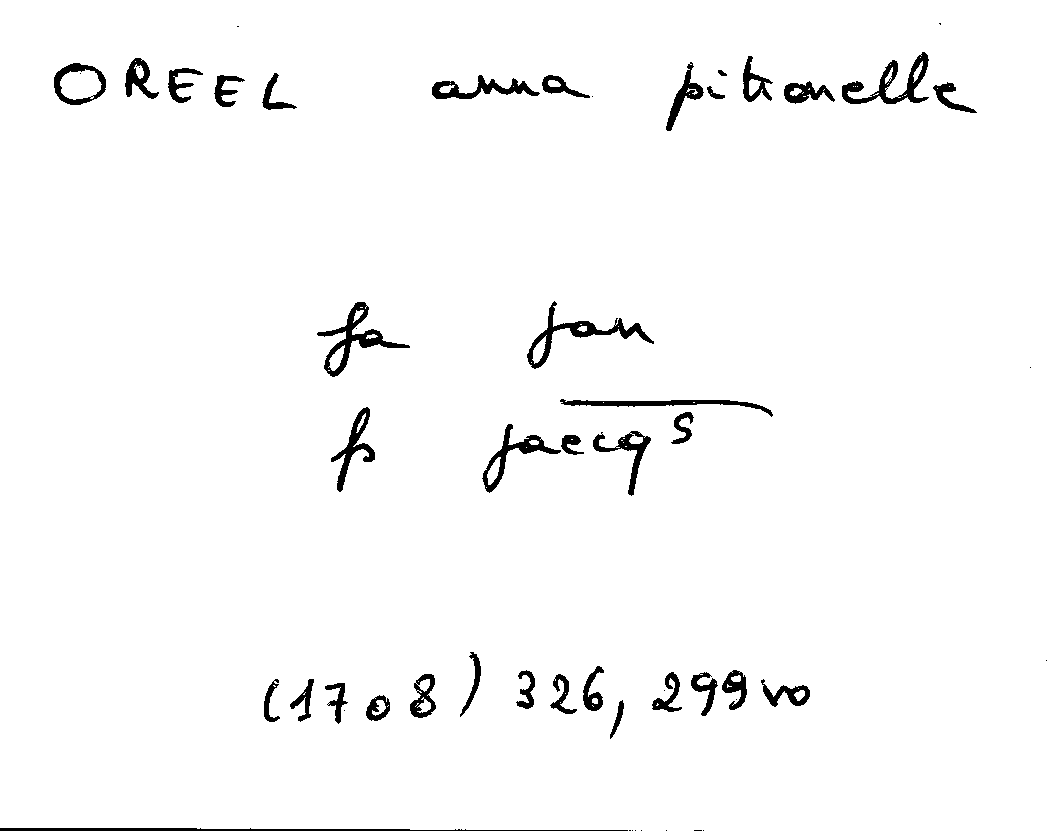 OREEL anna pitronelle
fa jan
p jaecqs
(1708) 326, 299 vo